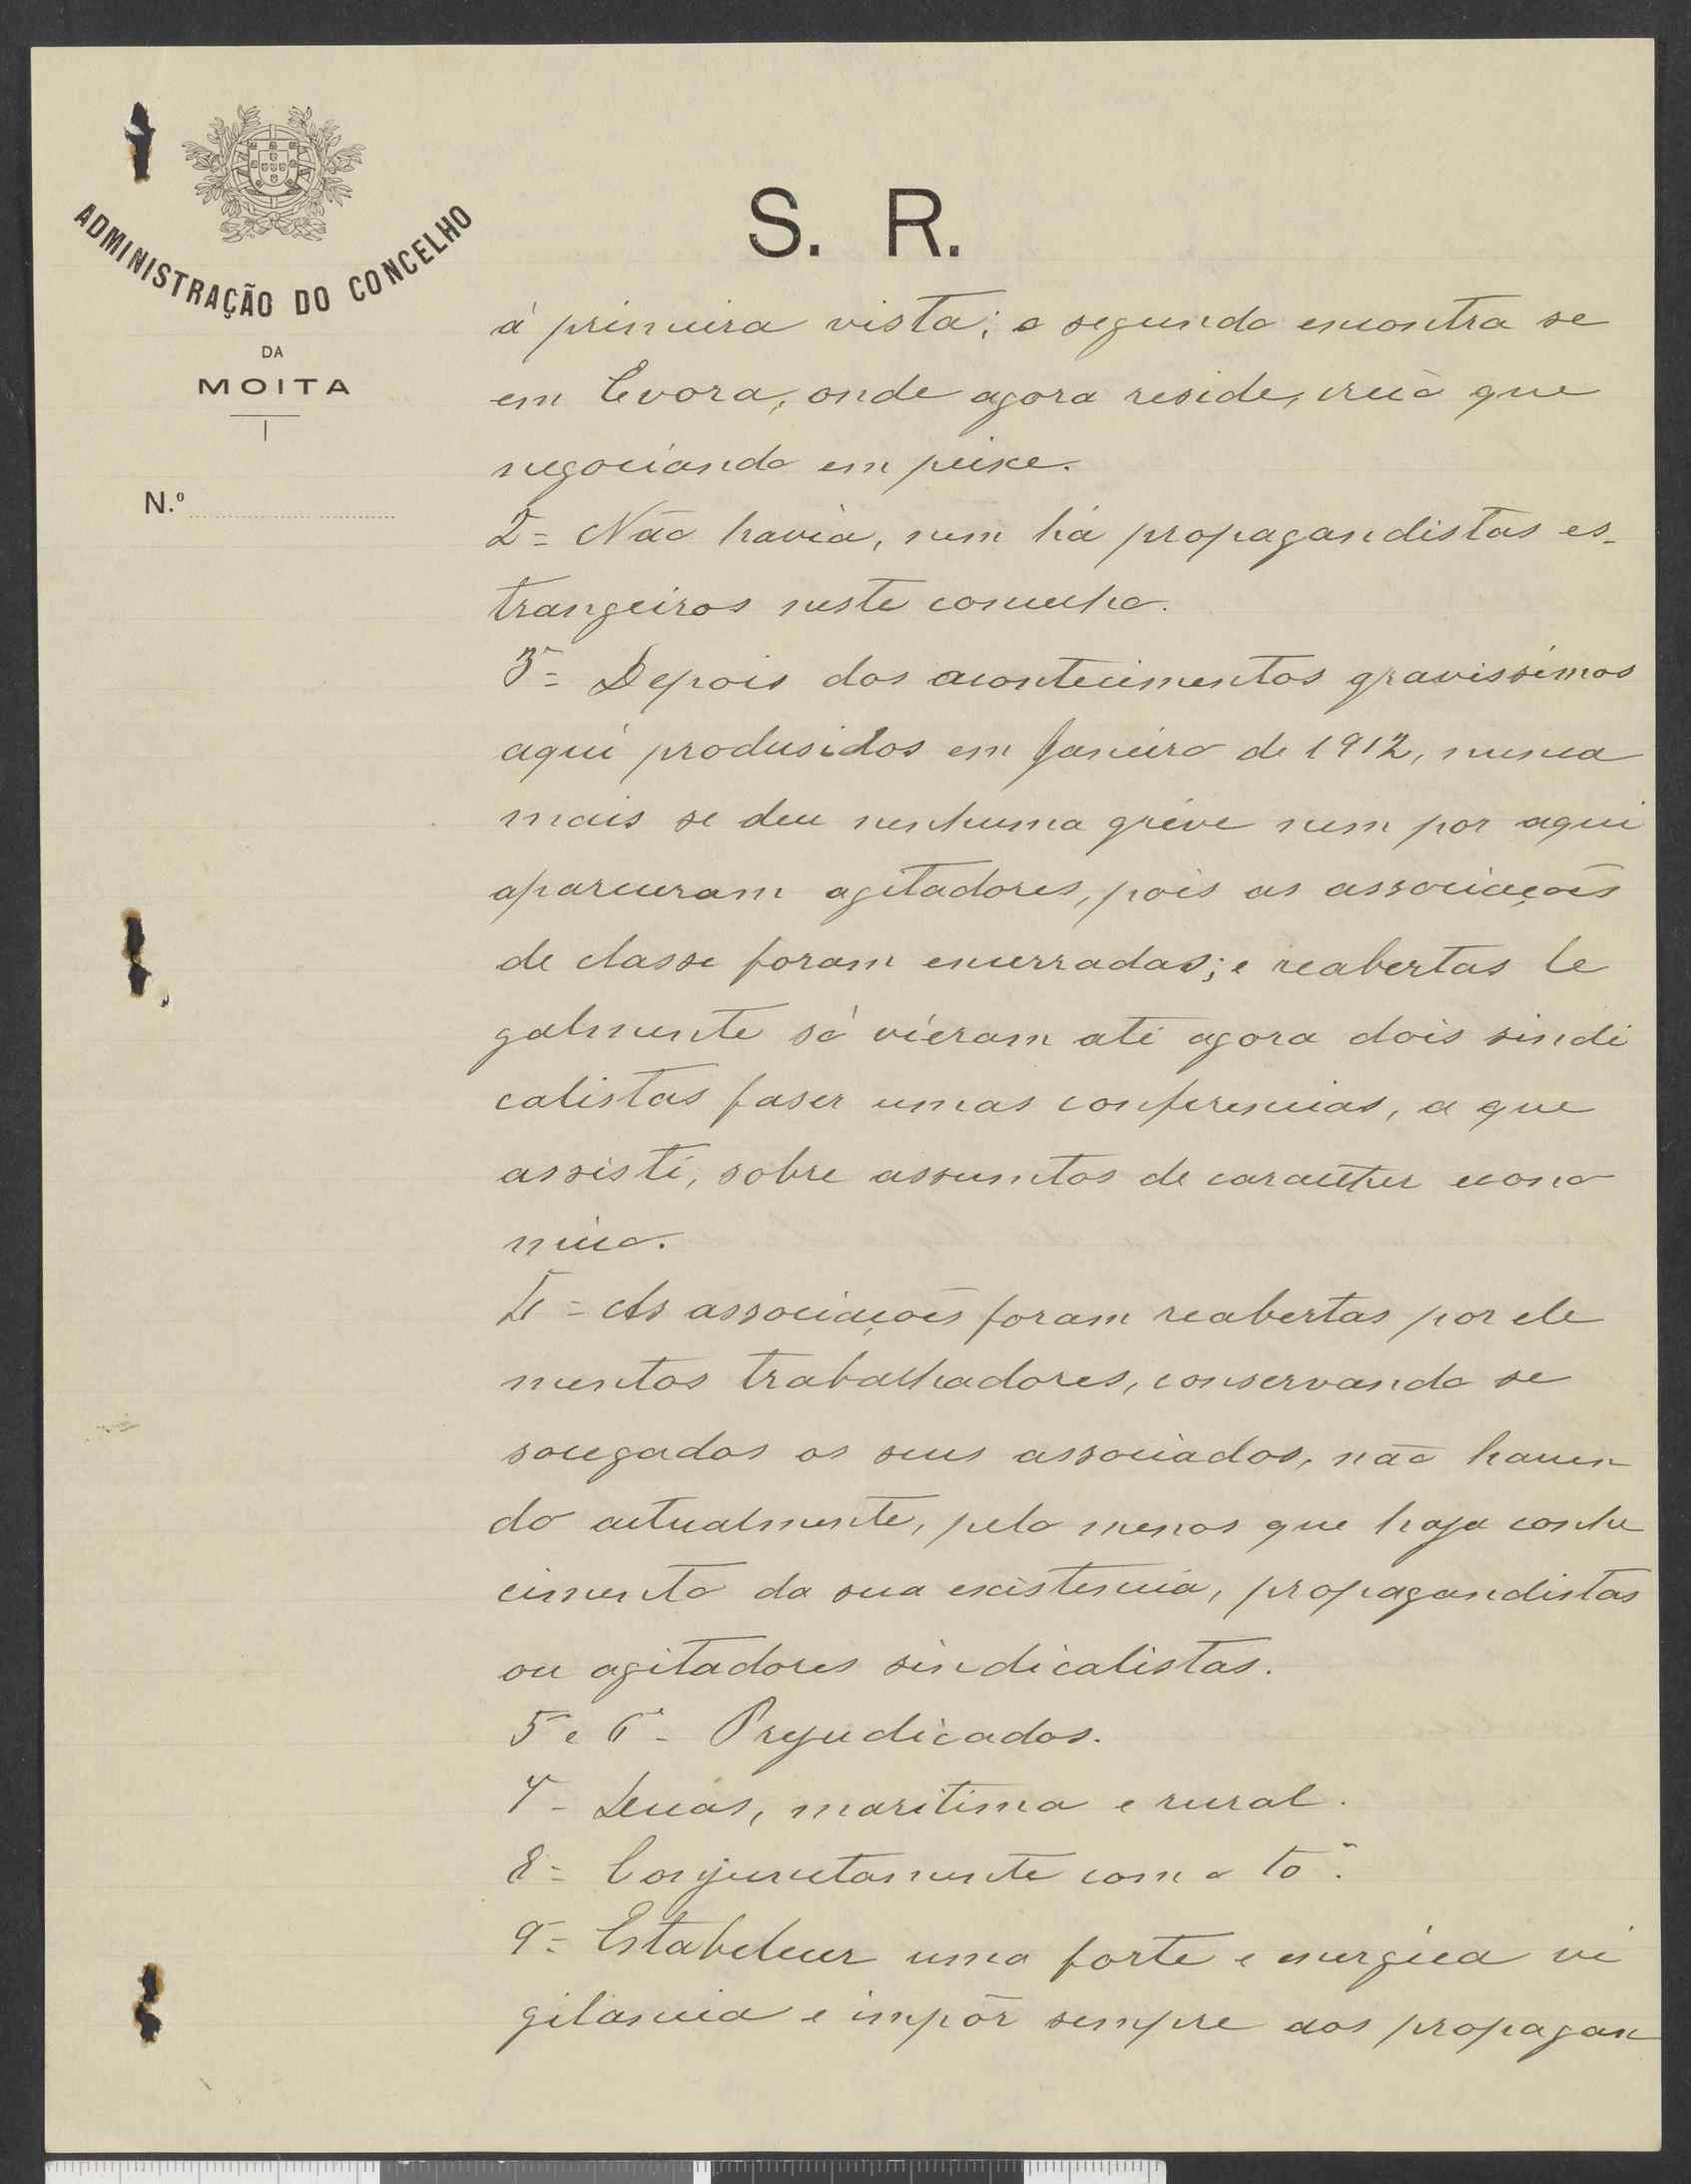 ADMINISTRAÇÃO DO CONCELHO
DA
MOITA
N.º
S. R.
á primeira vista; o segundo encontra se
em Evora, onde agora reside, creio que
negociando em peixe.
2º= Não havia, nem há propagandistas es-
trangeiros neste concelho.
3º= Depois dos acontecimentos gravissimos
aqui produsidos em Janeiro de 1912, nunca
mais se deu nenhuma gréve nem por aqui
apareceram agitadores, pois as associações
de classe foram encerradas; e reabertas le
galmente só vieram até agora dois sindi
calistas faser umas conferencias, a que
assisti, sobre assuntos de caracter econo
mico.
4º= As associações foram reabertas por ele
mentos trabalhadores, conservando se
socegados os seus associados, não haven
do actualmente, pelo menos que haja conhe
cimento da sua existencia, propagandistas
ou agitadores sindicalistas.
5º e 6º - Prejudicados.
7º - Duas, maritima e rural.
8º= Conjunctamente com o 10º.
9º= Estabelecer uma forte e energica vi
gilancia e impôr sempre aos propagan